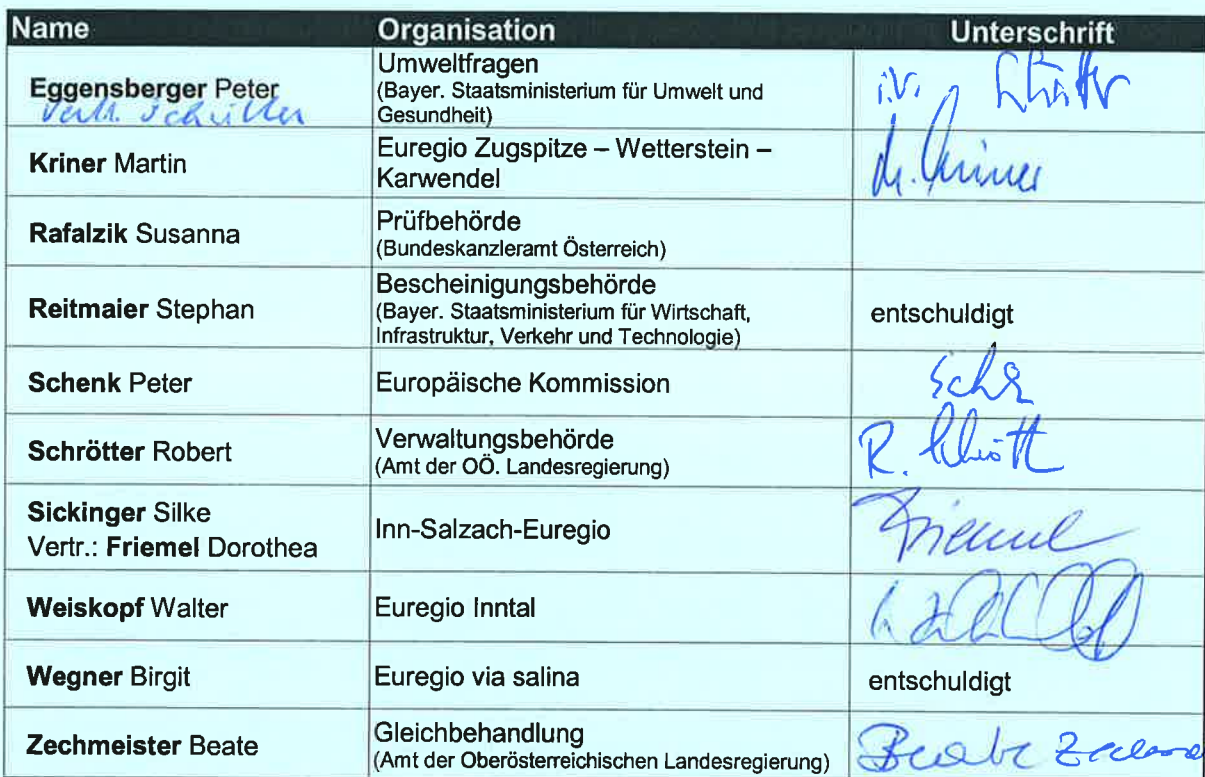 Name Organisation Unterschrift
Eggensberger Peter
Umweltfragen
(Bayer. Staatsministerium für Umwelt und
Gesundheit)
i.V.
Kriner Martin
Euregio Zugspitze – Wetterstein –
Karwendel
M. Kriner
Rafalzik Susanna
Prüfbehörde
(Bundeskanzleramt Österreich)
Reitmaier Stephan
Bescheinigungsbehörde
(Bayer. Staatsministerium für Wirtschaft,
Infrastruktur, Verkehr und Technologie)
entschuldigt
Schenk Peter
Europäische Kommission
Schrötter Robert
Verwaltungsbehörde
(Amt der OÖ. Landesregierung)
R. Schrött
Sickinger Silke
Vertr.: Friemel Dorothea
Inn-Salzach-Euregio
Friemel
Weiskopf Walter
Euregio Inntal
Wegner Birgit
Euregio via salina
entschuldigt
Zechmeister Beate
Gleichbehandlung
(Amt der Oberösterreichischen Landesregierung)
Beate